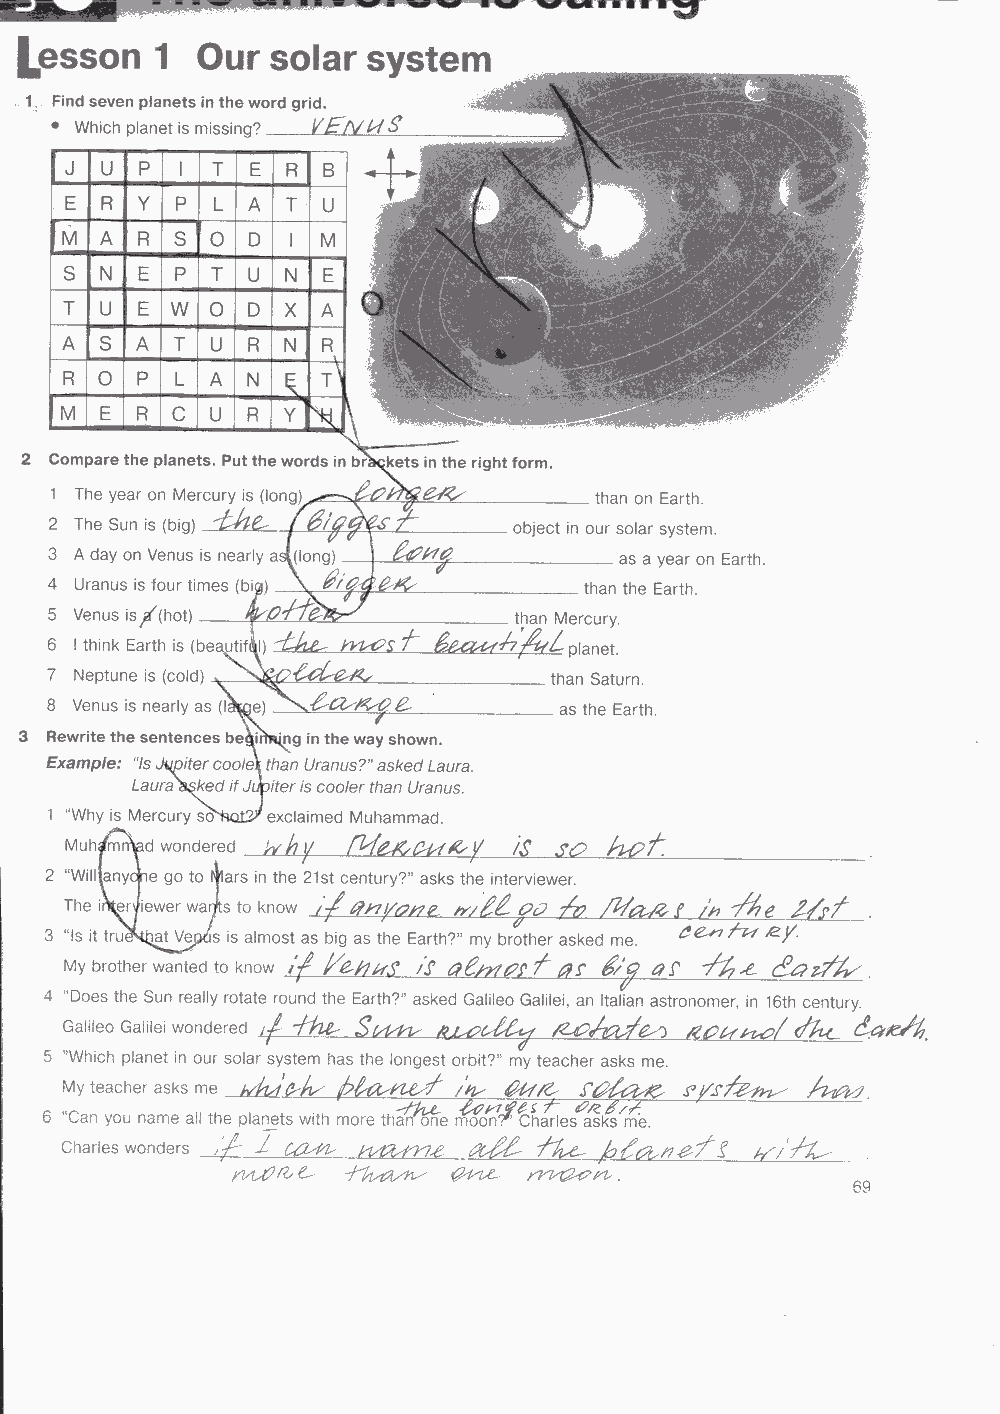 Lesson 1 Our solar system
1. Find seven planets in the word grid.
• Which planet is missing? VENUS
J U P I T E R B
E R Y P L A T U
M A R S O D I M
S N E P T U N E
T U E W O D X A
A S A T U R N R
R O P L A N E T
M E R C U R Y H
2 Compare the planets. Put the words in brackets in the right form.
1 The year on Mercury is (long) longer than on Earth.
2 The Sun is (big) the biggest object in our solar system.
3 A day on Venus is nearly as (long) long as a year on Earth.
4 Uranus is four times (big) bigger than the Earth.
5 Venus is a (hot) hotter than Mercury.
6 I think Earth is (beautiful) the most beautiful planet.
7 Neptune is (cold) colder than Saturn.
8 Venus is nearly as (large) large as the Earth.
3 Rewrite the sentences beginning in the way shown.
Example: "Is Jupiter cooler than Uranus?" asked Laura.
Laura asked if Jupiter is cooler than Uranus.
1 "Why is Mercury so hot?" exclaimed Muhammad.
Muhammad wondered why Mercury is so hot.
2 "Will anyone go to Mars in the 21st century?" asks the interviewer.
The interviewer wants to know if anyone will go to Mars in the 21st
century.
3 "Is it true that Venus is almost as big as the Earth?" my brother asked me.
My brother wanted to know if Venus is almost as big as the Earth.
4 "Does the Sun really rotate round the Earth?" asked Galileo Galilei, an Italian astronomer, in 16th century.
Galileo Galilei wondered if the Sun really rotates round the Earth.
5 "Which planet in our solar system has the longest orbit?" my teacher asks me.
My teacher asks me which planet in our solar system has
the longest orbit.
6 "Can you name all the planets with more than one moon?" Charles asks me.
Charles wonders if I can name all the planets with
more than one moon.
69